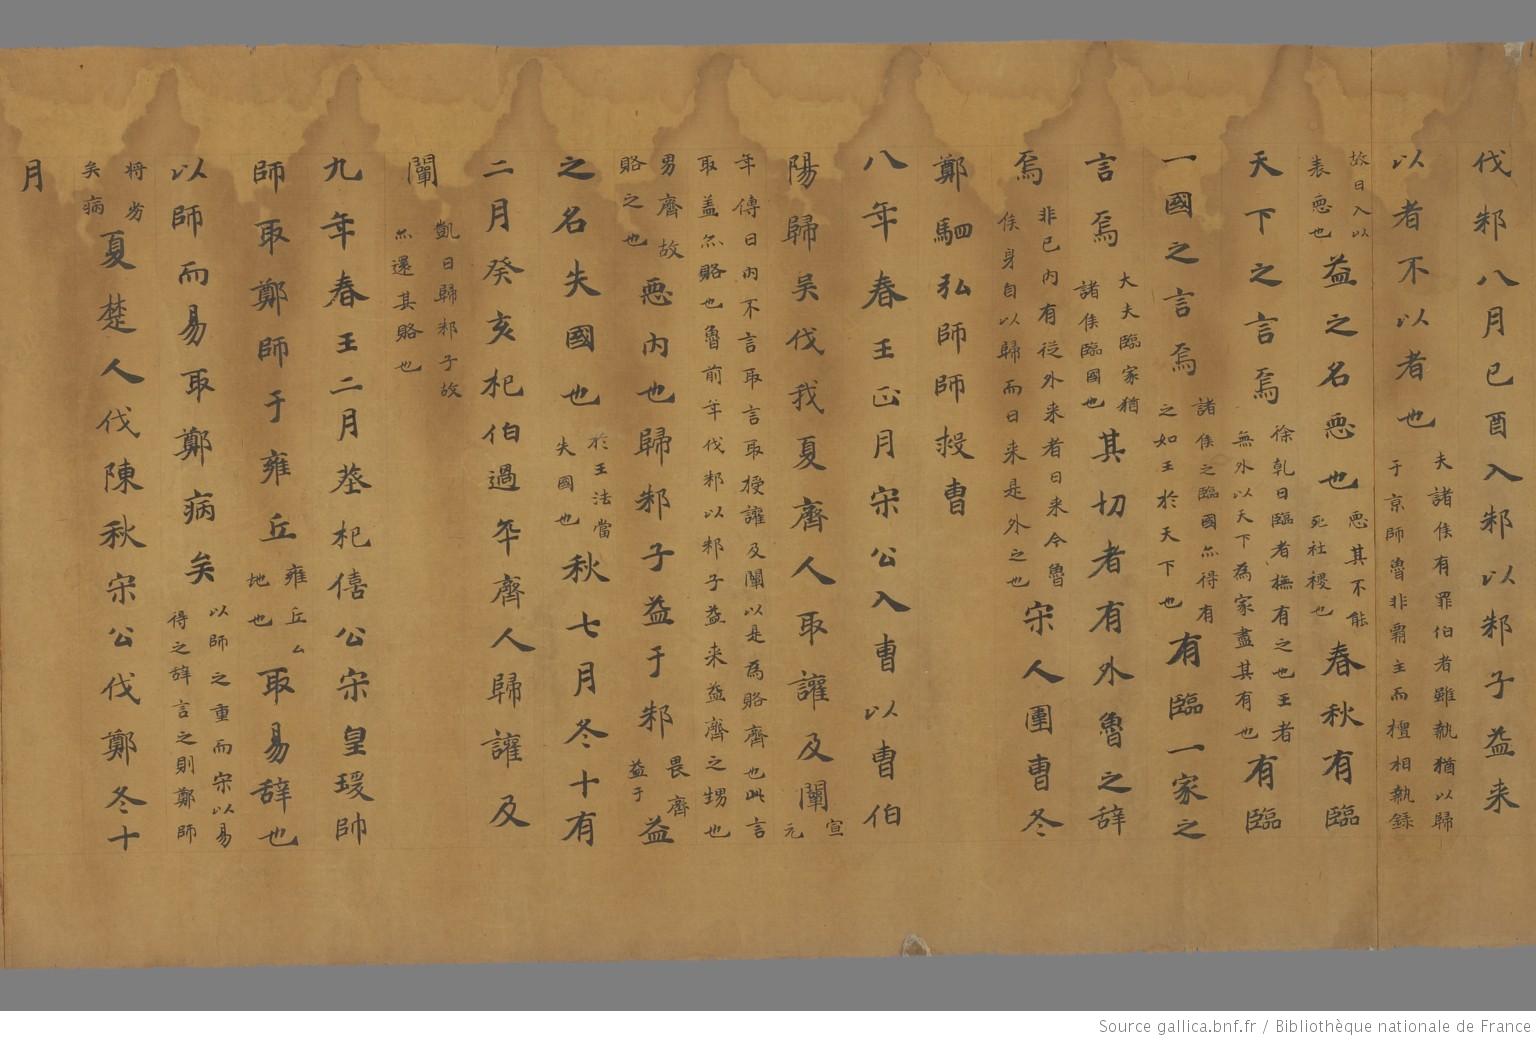 伐邾八月已酉入邾以邾子益来
以者不以者也夫諸侯有罪伯者雖執猶以歸于京師魯非霸主而檀相執錄
故曰入以表惡也益之名惡也惡其不能死社稷也春秋有臨
天下之言焉徐乹曰臨者撫有之也王者無外以天下為家盡其有也有臨
一國之言焉諸侯之臨國亦得有之如王於天下也有臨一家之
言焉大夫臨家猶諸侯臨國也其切者有外魯之辞
焉非已內有従外来者曰来今魯侯身自以歸而曰来是外之也宋人圍曺冬
鄭駟弘師師捄曺
八年春王正月宋公入曺以曺伯
陽歸吴伐我夏齊人取讙及闡宣元
年傳曰內不言取言取授讙及闡以是為賂齊也此言取盖亦賂也魯前年伐邾以邾子益来益齊之甥也
男齊故賂之也惡內也歸邾子益于邾畏齊益于益
之名失國也於王法當失國也秋七月冬十有
二月癸亥杞伯過卒齊人歸讙及
闡凱曰歸邾子故亦還其賂也
九年春王二月塟杞僖公宋皇瑗帥
師取鄭師于雍丘雍丘厶地也取易辞也
以師而易取鄭病矣以師之重而宋以易得之辞言之則鄭師
将劣矣病夏楚人伐陳秋宋公伐鄭冬十
月
Source gallica.bnf.fr / Bibliothèque nationale de France